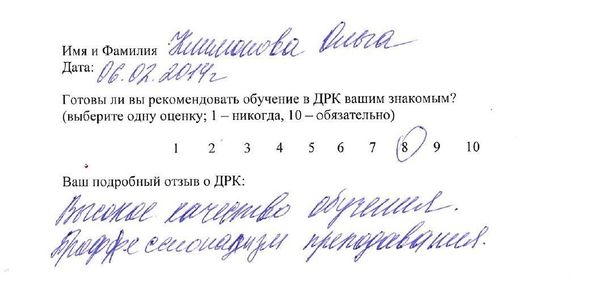 Имя и Фамилия Климонова Ольга
Дата: 06.02.2014г
Готовы ли вы рекомендовать обучение в ДРК вашим знакомым?
(выберите одну оценку; 1 – никогда, 10 – обязательно)
1 2 3 4 5 6 7 8 9 10
Ваш подробный отзыв о ДРК:
Высокое качество обучения.
Профессионализм преподавания.